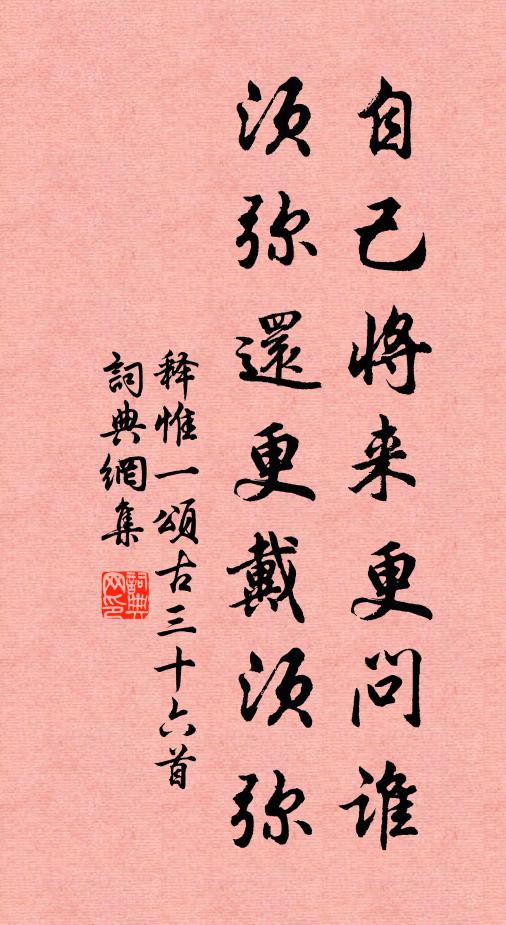 自己将来更问谁
须弥還更戴须弥
释惟一頌古三十六首
詞典網集
詞典網印